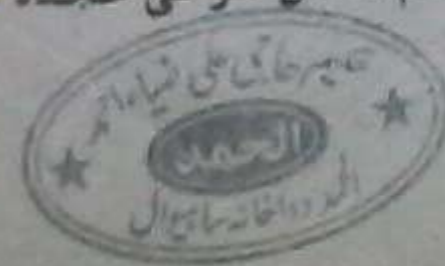 حکیم حاجی علی ضیاء احمد
الحمد
الحمد دواخانہ ساہیوال